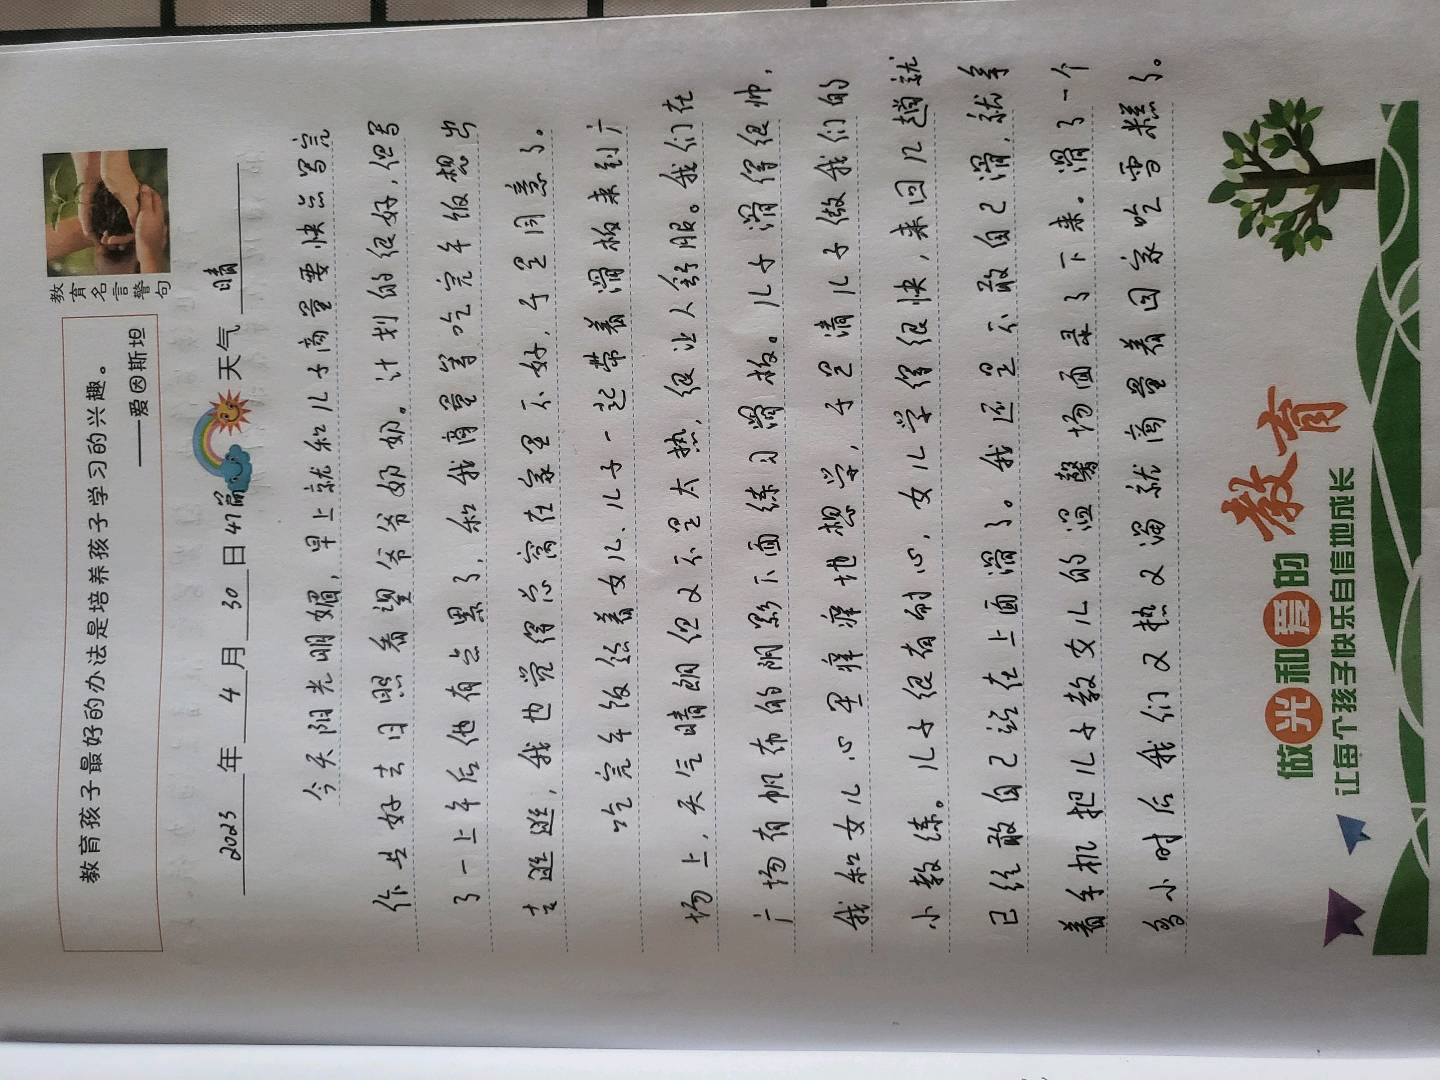 教育孩子最好的办法是培养孩子学习的兴趣。
——爱因斯坦
教育名言警句
2023年4月30日47篇 天气 晴
今天阳光明媚，早上就和儿子商量要快点写完
作业好去日照看望爷爷奶奶。计划的很好，但写
了一上午后他有点累了，和我商量等吃完午饭想出
去逛逛，我也觉得总窝在家里不好，于是同意了。
吃完午饭领着女儿、儿子一起带着滑板来到广
场上，天气晴朗但又不是太热，很让人舒服。我们在
广场有帆布的阴影下面练习滑板。儿子滑得很帅，
我和女儿心里痒痒地想学，于是请儿子做我们的
小教练。儿子很有耐心，女儿学得很快，来回几趟就
已经敢自己站在上面滑了。我还是不敢自己滑，就拿
着手机把儿子教女儿的温馨场面录了下来。滑了一个
多小时后我们又热又渴就商量着回家吃雪糕了。
做光和爱的教育
让每个孩子快乐自信地成长